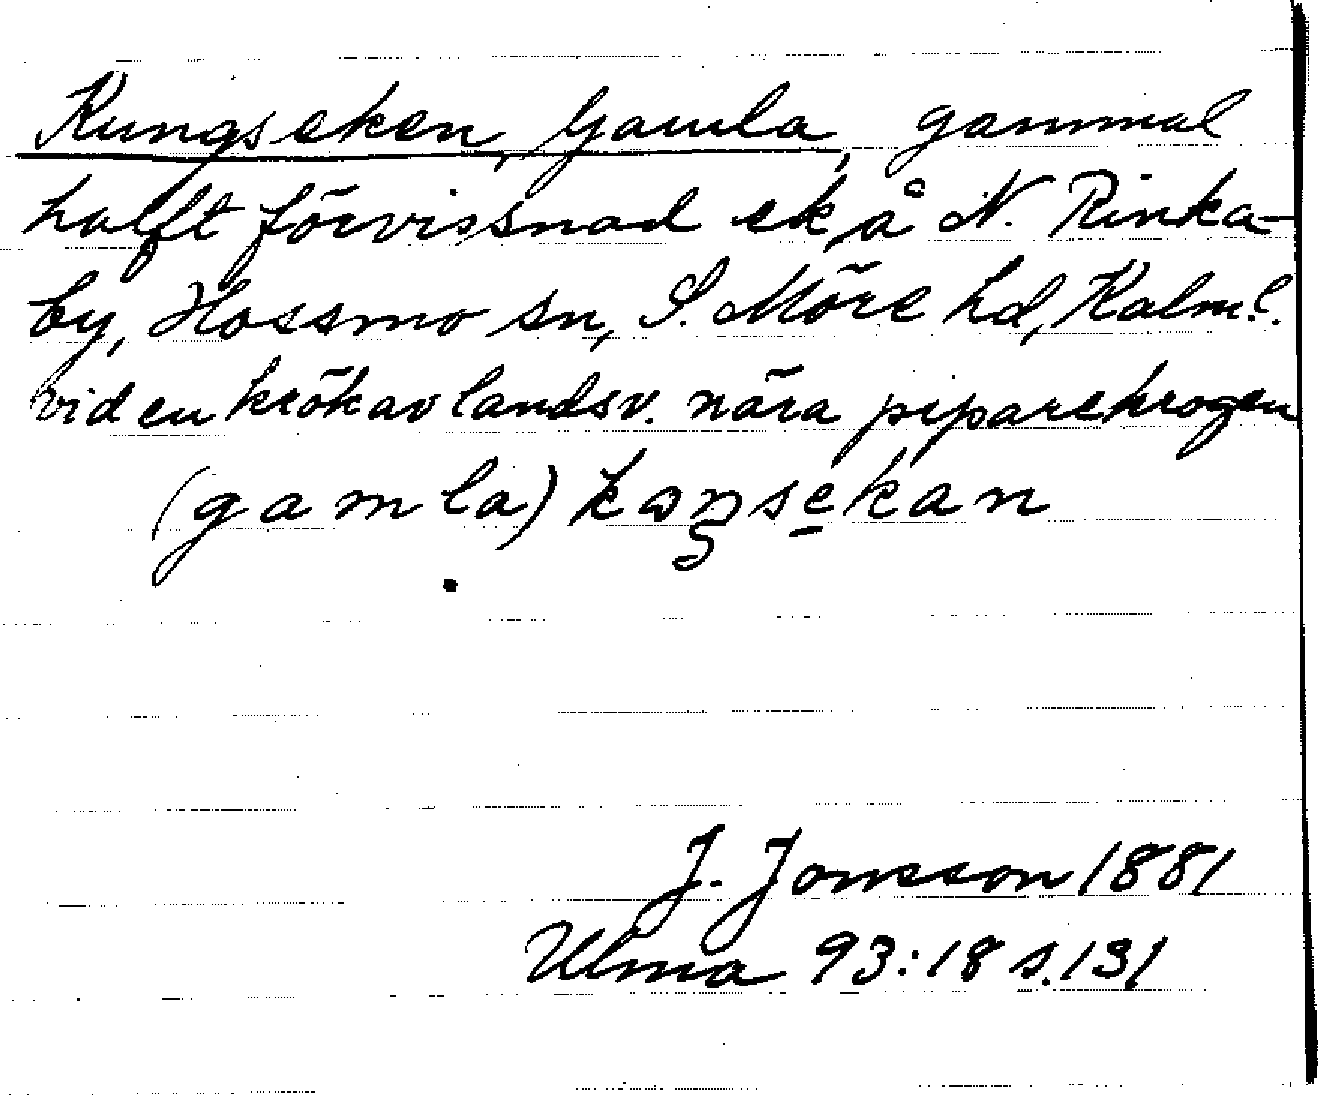 Kungseken, Gamla, gammal
halft förvissnad ek å N. Rinka-
by, Hossmo sn, S. Möre hd, Kalm. l.
vid en krök av landsv. nära piparekrogen
(gamla) kɷŋsekan
J. Jonsson 1881
Ulma 93:18 s. 131